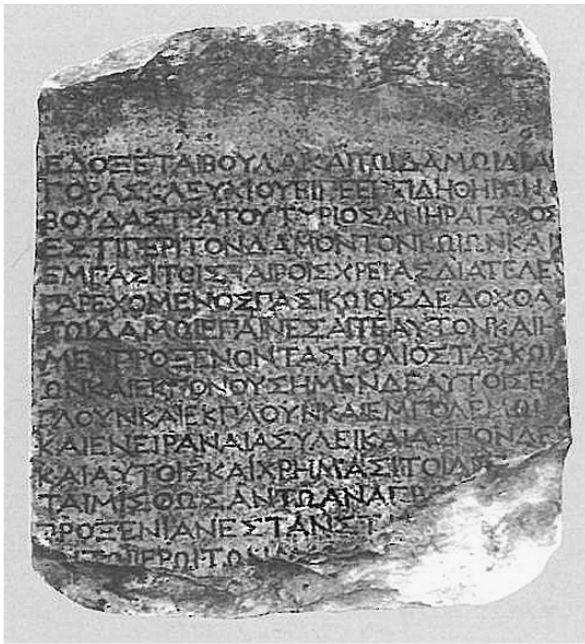 ΕΔΟΞΕΤΑΙΒΟΥΛΑΙΚΑΙΤΩΙΔΑΜΩΙΔΙΑ
ΓΟΡΑΣΚΛΕΥΧΙΟΥΕΙΠΕΕΠΕΙΔΗΘΗΡΩΝ
ΒΟΥΔΑΣΤΡΑΤΟΥΤΥΡΙΟΣΑΝΗΡΑΓΑΘΟΣ
ΕΣΤΙΠΕΡΙΤΟΝΔΑΜΟΝΤΟΝΚΩΙΩΝΚΑΙ
ΕΜΠΑΣΙΤΟΙΣΚΑΙΡΟΙΣΧΡΕΙΑΣΔΙΑΤΕΛΕ
ΠΑΡΕΧΟΜΕΝΟΣΠΑΣΙΚΩΙΟΙΣΔΕΔΟΧΘΑ
ΤΩΙΔΑΜΩΙΕΠΑΙΝΕΣΑΙΤΕΑΥΤΟΝΚΑΙΗ
ΜΕΝΠΡΟΞΕΝΟΝΤΑΣΠΟΛΙΟΣΤΑΣΚΩΙ
ΩΝΚΑΙΕΚΓΟΝΟΥΣΗΜΕΝΔΕΑΥΤΟΙΣΕΣ
ΠΛΟΥΝΚΑΙΕΚΠΛΟΥΝΚΑΙΕΜΠΟΛΕΜΩΙ
ΚΑΙΕΝΕΙΡΑΝΑΙΑΣΥΛΕΙΚΑΙΑΣΠΟΝΔΕ
ΚΑΙΑΥΤΟΙΣΚΑΙΧΡΗΜΑΣΙΤΟΙΔΕ
ΤΑΙΜΙΣΘΩΣΑΝΤΩΑΝΑΓΡ
ΠΡΟΞΕΝΙΑΝΕΣΤΑΝΣΤ